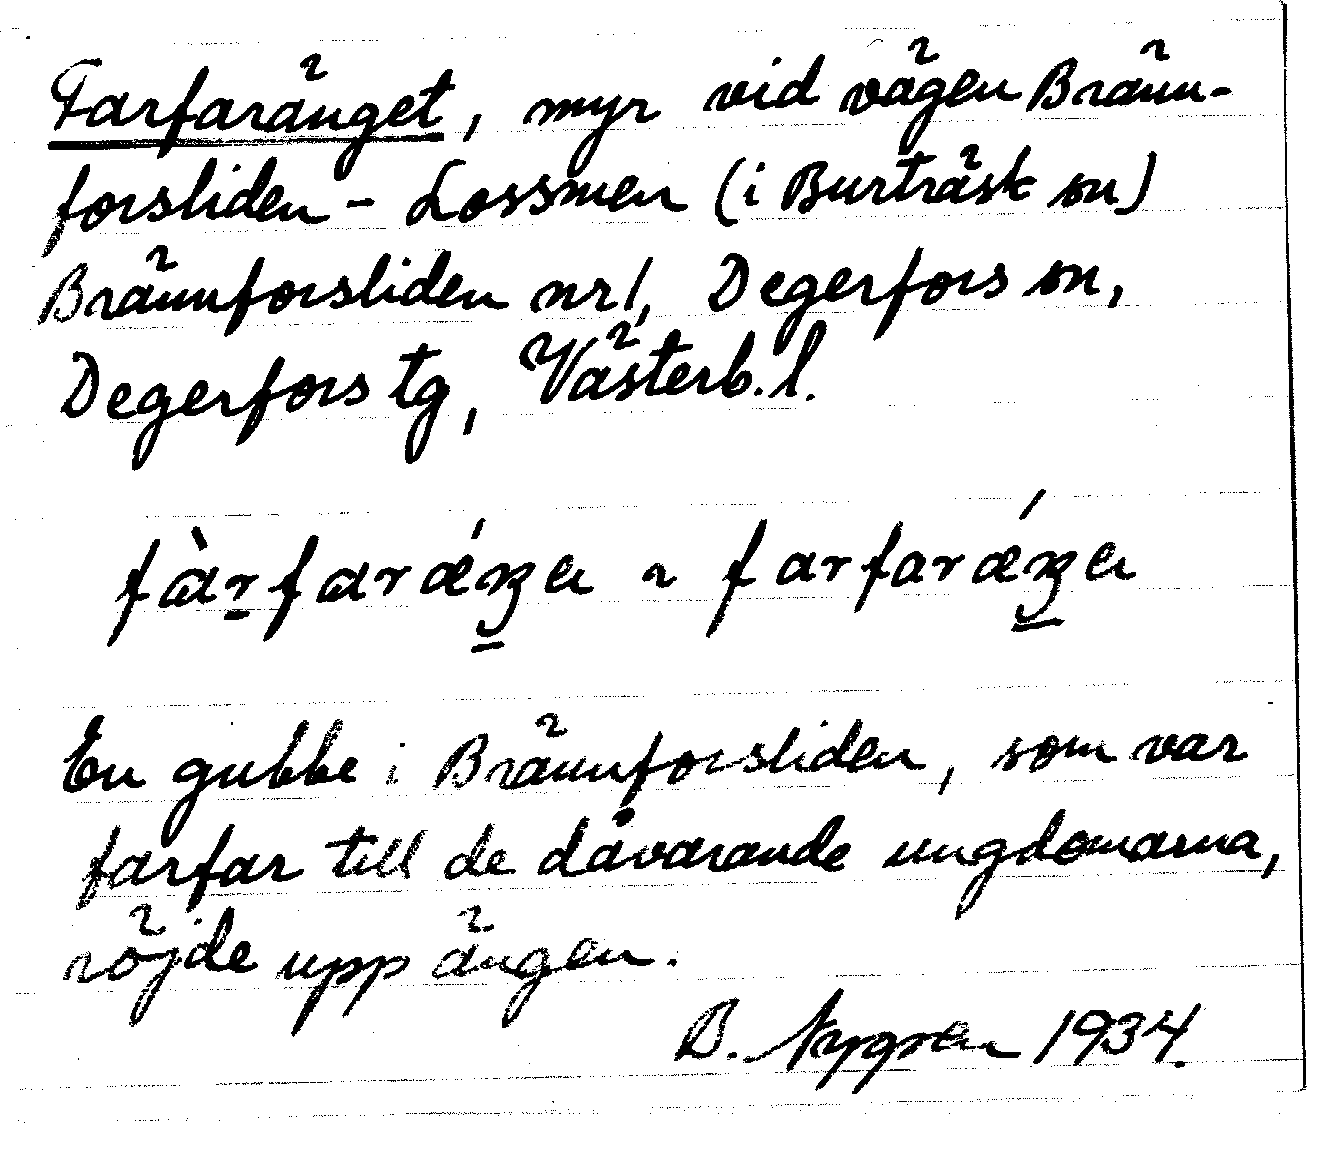 Farfaränget, myr vid vägen Bränn-
forsliden - Lossmen (i Burträsk sn)
Brännforsliden nr 1, Degerfors sn,
Degerfors tg, Västerb. l.
fàrfaráeŋa ~ farfaráeŋa
En gubbe i Brännforsliden, som var
farfar till de dåvarande ungdomarna,
röjde upp ängen.
B. Nygren 1934.